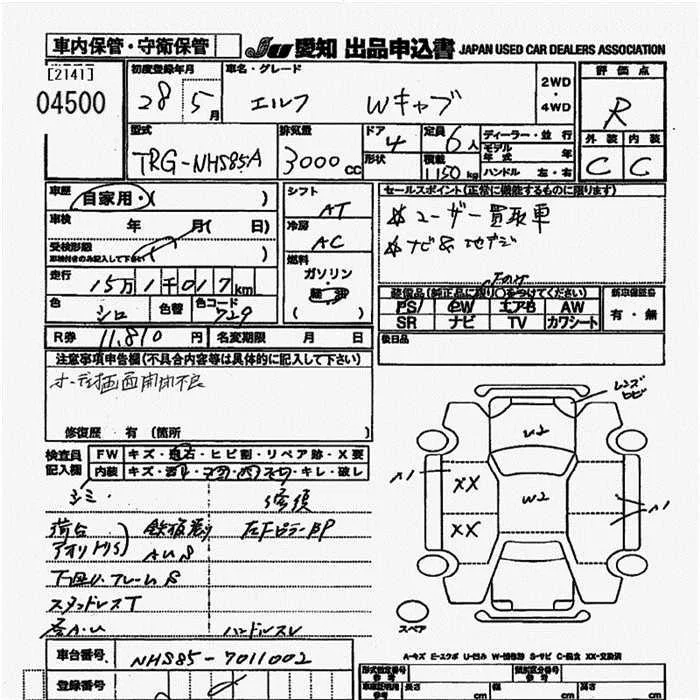 車内保管・守衛保管
JU 愛知 出品申込書 JAPAN USED CAR DEALERS ASSOCIATION
[2141]
04500
初度登録年月
28 5月
車名・グレード
エルフ Wキャブ
2WD
・
4WD
評価点
R
外装 内装
C C
型式
TRG-NHS85A
排気量
3000 cc
ドア
4
形状
定員
6人
積載
1150 kg
ディーラー・並行
モデル年式 年
ハンドル 左・右
車歴
自家用・( )
車検 年 月( 日)
受検形態
走行
15万1千017km
色 シロ 色替 色コード 729
シフト
AT
冷房
AC
燃料
ガソリン・
( )
セールスポイント(正常に機能するものに限ります)
☆ユーザー買取車
☆ナビ&地デジ
装備品(純正品に限り○をつけてください)
PS PW エアB AW
SR ナビ TV カワシート
新車保証書
有・無
後日品
R券 11,810円 名変期限 月 日
注意事項申告欄(不具合内容等は具体的に記入して下さい)
オーディオ画面開閉不良
修復歴 有 (箇所 )
検査員記入欄
FW キズ・飛石・ヒビ割・リペア跡・X要
内装 キズ・キレ・破し
シミ・
荷台
アオリ
鉄板張り
AUS
下回り、フレームS
スタッドレスT
各A・U
ハンドルスレ
レンズヒビ
U2
W2
XX
XX
A1
A1
スペア
A-キズ E-エクボ U-凹み W-補修跡 S-サビ C-腐食 XX-交換済
車台番号 NHS85-7011002
登録番号
型式指定番号
類別区分番号
長さ cm
幅 cm
高さ cm